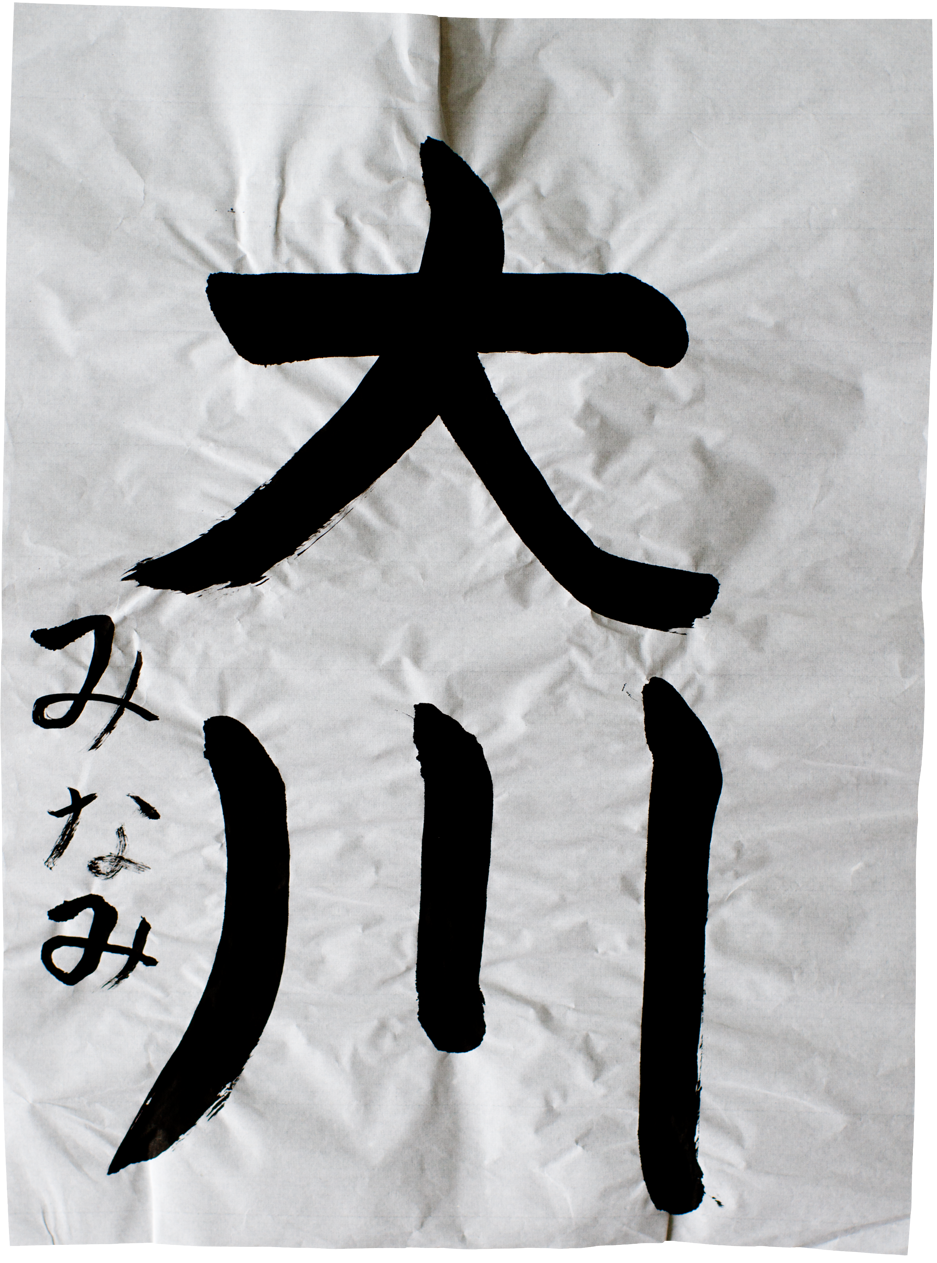 大川
みなみ